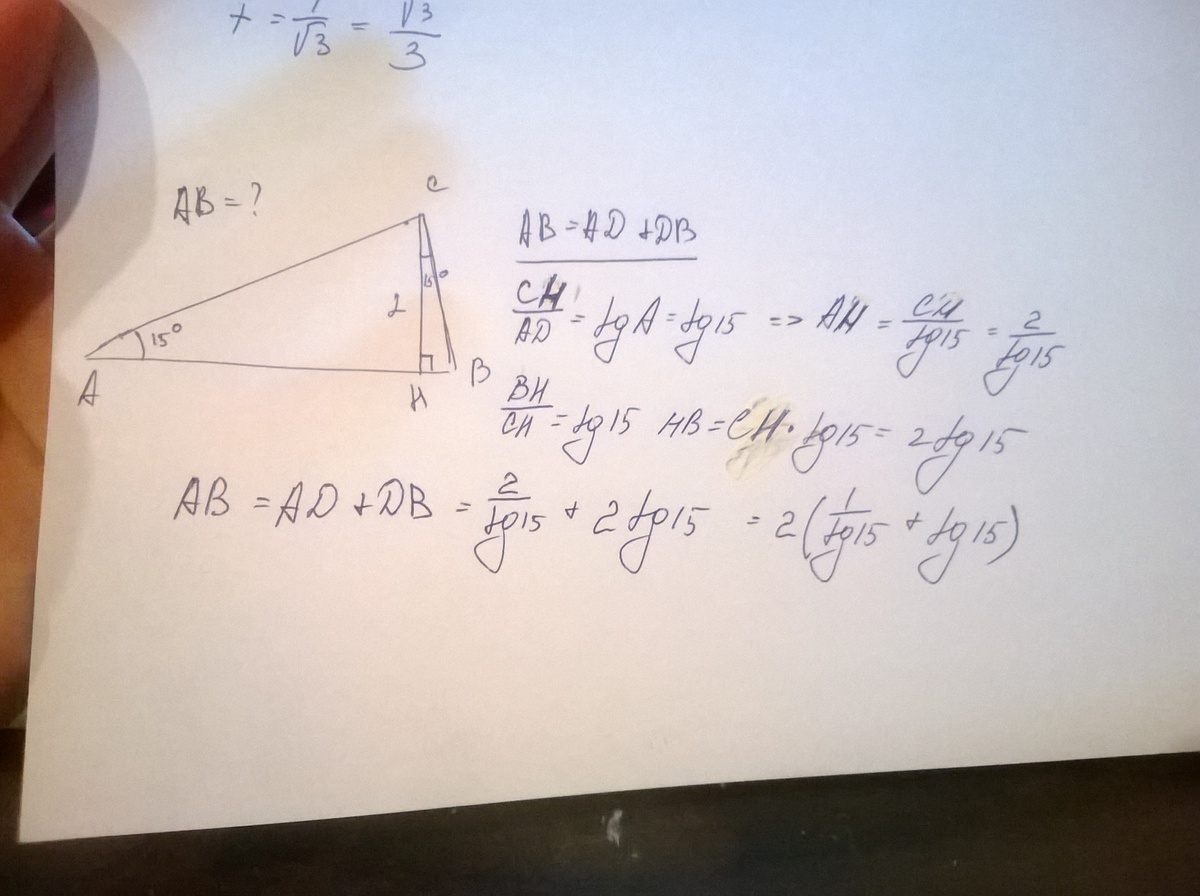 t = 1/√3 = √3/3
AB = ?
C
2
15°
15°
A
H
B
AB = AD + DB
CH/AD = tg A = tg 15 => AH = CH/tg 15 = 2/tg 15
BH/CH = tg 15 HB = CH · tg 15 = 2 tg 15
AB = AD + DB = 2/tg 15 + 2 tg 15 = 2(1/tg 15 + tg 15)